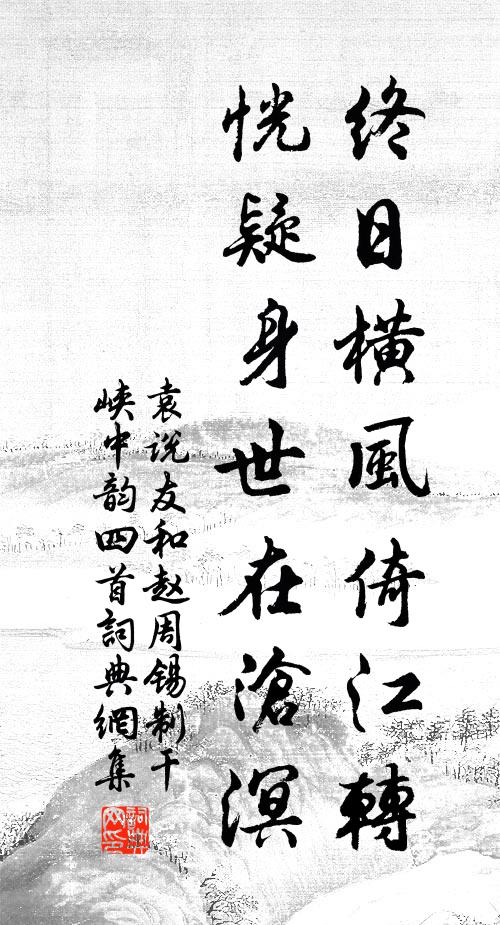 終日橫風倚江轉
恍疑身世在滄溟
袁说友和赵周锡制干
峡中韵四首詞典網集
詞典
网印